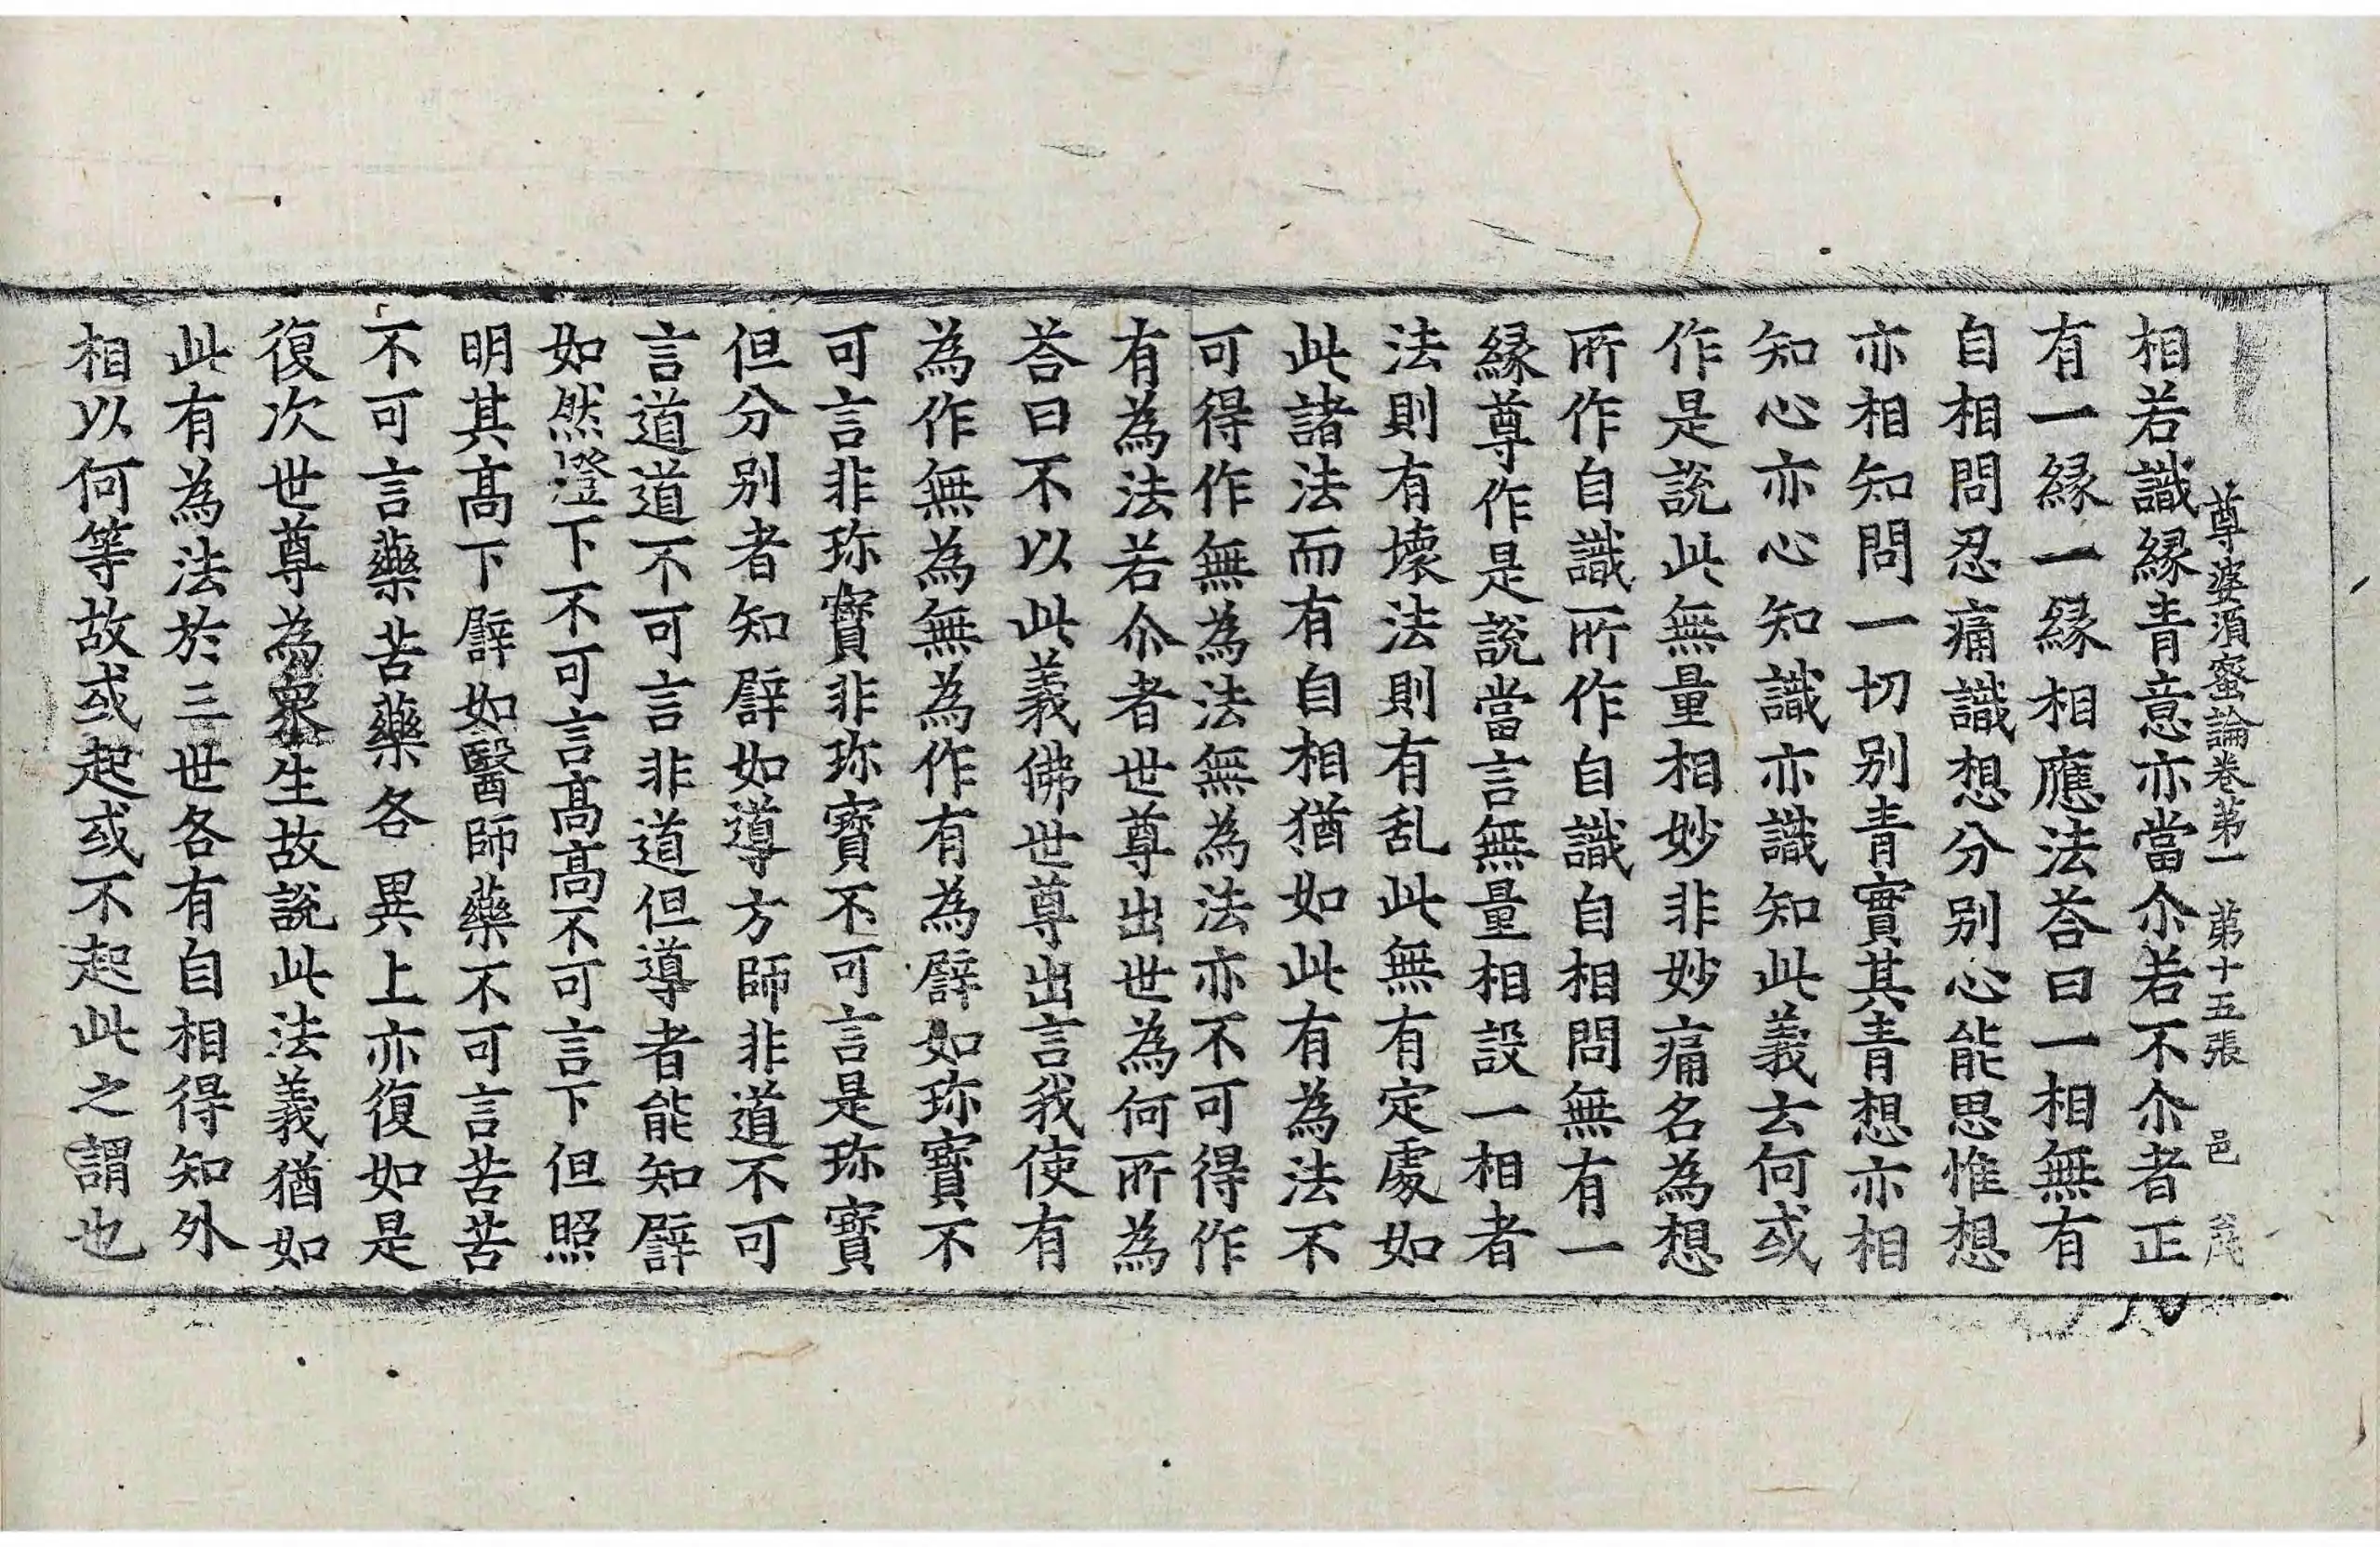 尊婆須蜜論卷第一 第十五張 邑
相若識緣青意亦當尒若不尒者正
有一緣一緣相應法荅曰一相無有
自相問忍痛識想分別心能思惟想
亦相知問一切別青實其青想亦相
知心亦心知識亦識知此義云何或
作是說此無量相妙非妙痛名為想
所作自識所作自識自相問無有一
緣尊作是說當言無量相設一相者
法則有壞法則有乱此無有定處如
此諸法而有自相猶如此有為法不
可得作無為法無為法亦不可得作
有為法若尒者世尊出世為何所為
荅曰不以此義佛世尊出言我使有
為作無為無為作有為譬如珎寶不
可言非珎寶非珎寶不可言是珎寶
但分別者知譬如導方師非道不可
言道道不可言非道但導者能知譬
如然澄下不可言高高不可言下但照
明其高下譬如醫師藥不可言苦苦
不可言藥苦藥各異上亦復如是
復次世尊為衆生故說此法義猶如
此有為法於三世各有自相得知外
相以何等故或起或不起此之謂也